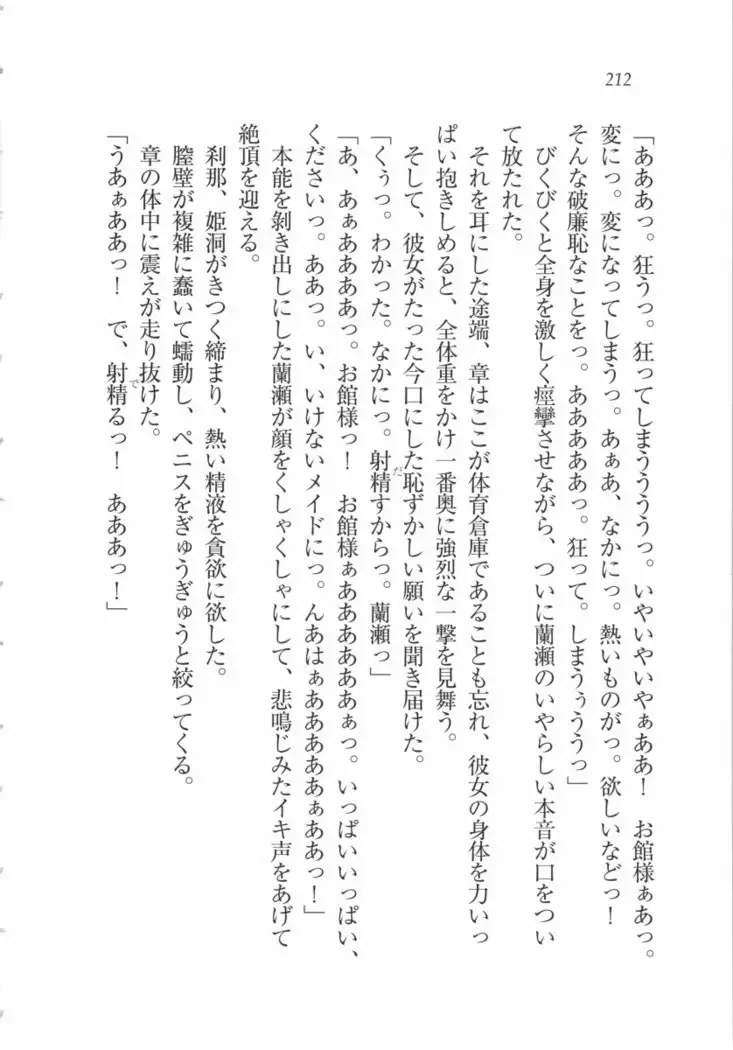 212
「あああっ。狂うっ。狂ってしまううううっ。いやいやいやぁああ！　お館様ぁあっ。
変にっ。変になってしまうっ。あぁあ、なかにっ。熱いものがっ。欲しいなどっ！
そんな破廉恥なことをっ。あああああっ。狂って。しまうぅううっ」
びくびくと全身を激しく痙攣させながら、ついに蘭瀬のいやらしい本音が口をつい
て放たれた。
それを耳にした途端、章はここが体育倉庫であることも忘れ、彼女の身体を力いっ
ぱい抱きしめると、全体重をかけ一番奥に強烈な一撃を見舞う。
そして、彼女がたった今口にした恥ずかしい願いを聞き届けた。
「くぅっ。わかった。なかにっ。射精すからっ。蘭瀬っ」
「あ、あぁああああっ。お館様っ！　お館様ぁああああああぁっ。いっぱいいっぱい、
くださいっ。ああっ。い、いけないメイドにっ。んあはぁあああああぁああっ！」
本能を剥き出しにした蘭瀬が顔をくしゃくしゃにして、悲鳴じみたイキ声をあげて
絶頂を迎える。
刹那、姫洞がきつく締まり、熱い精液を貪欲に欲した。
膣壁が複雑に蠢いて蠕動し、ペニスをぎゅうぎゅうと絞ってくる。
章の体中に震えが走り抜けた。
「うあぁああっ！　で、射精るっ！　あああっ！」